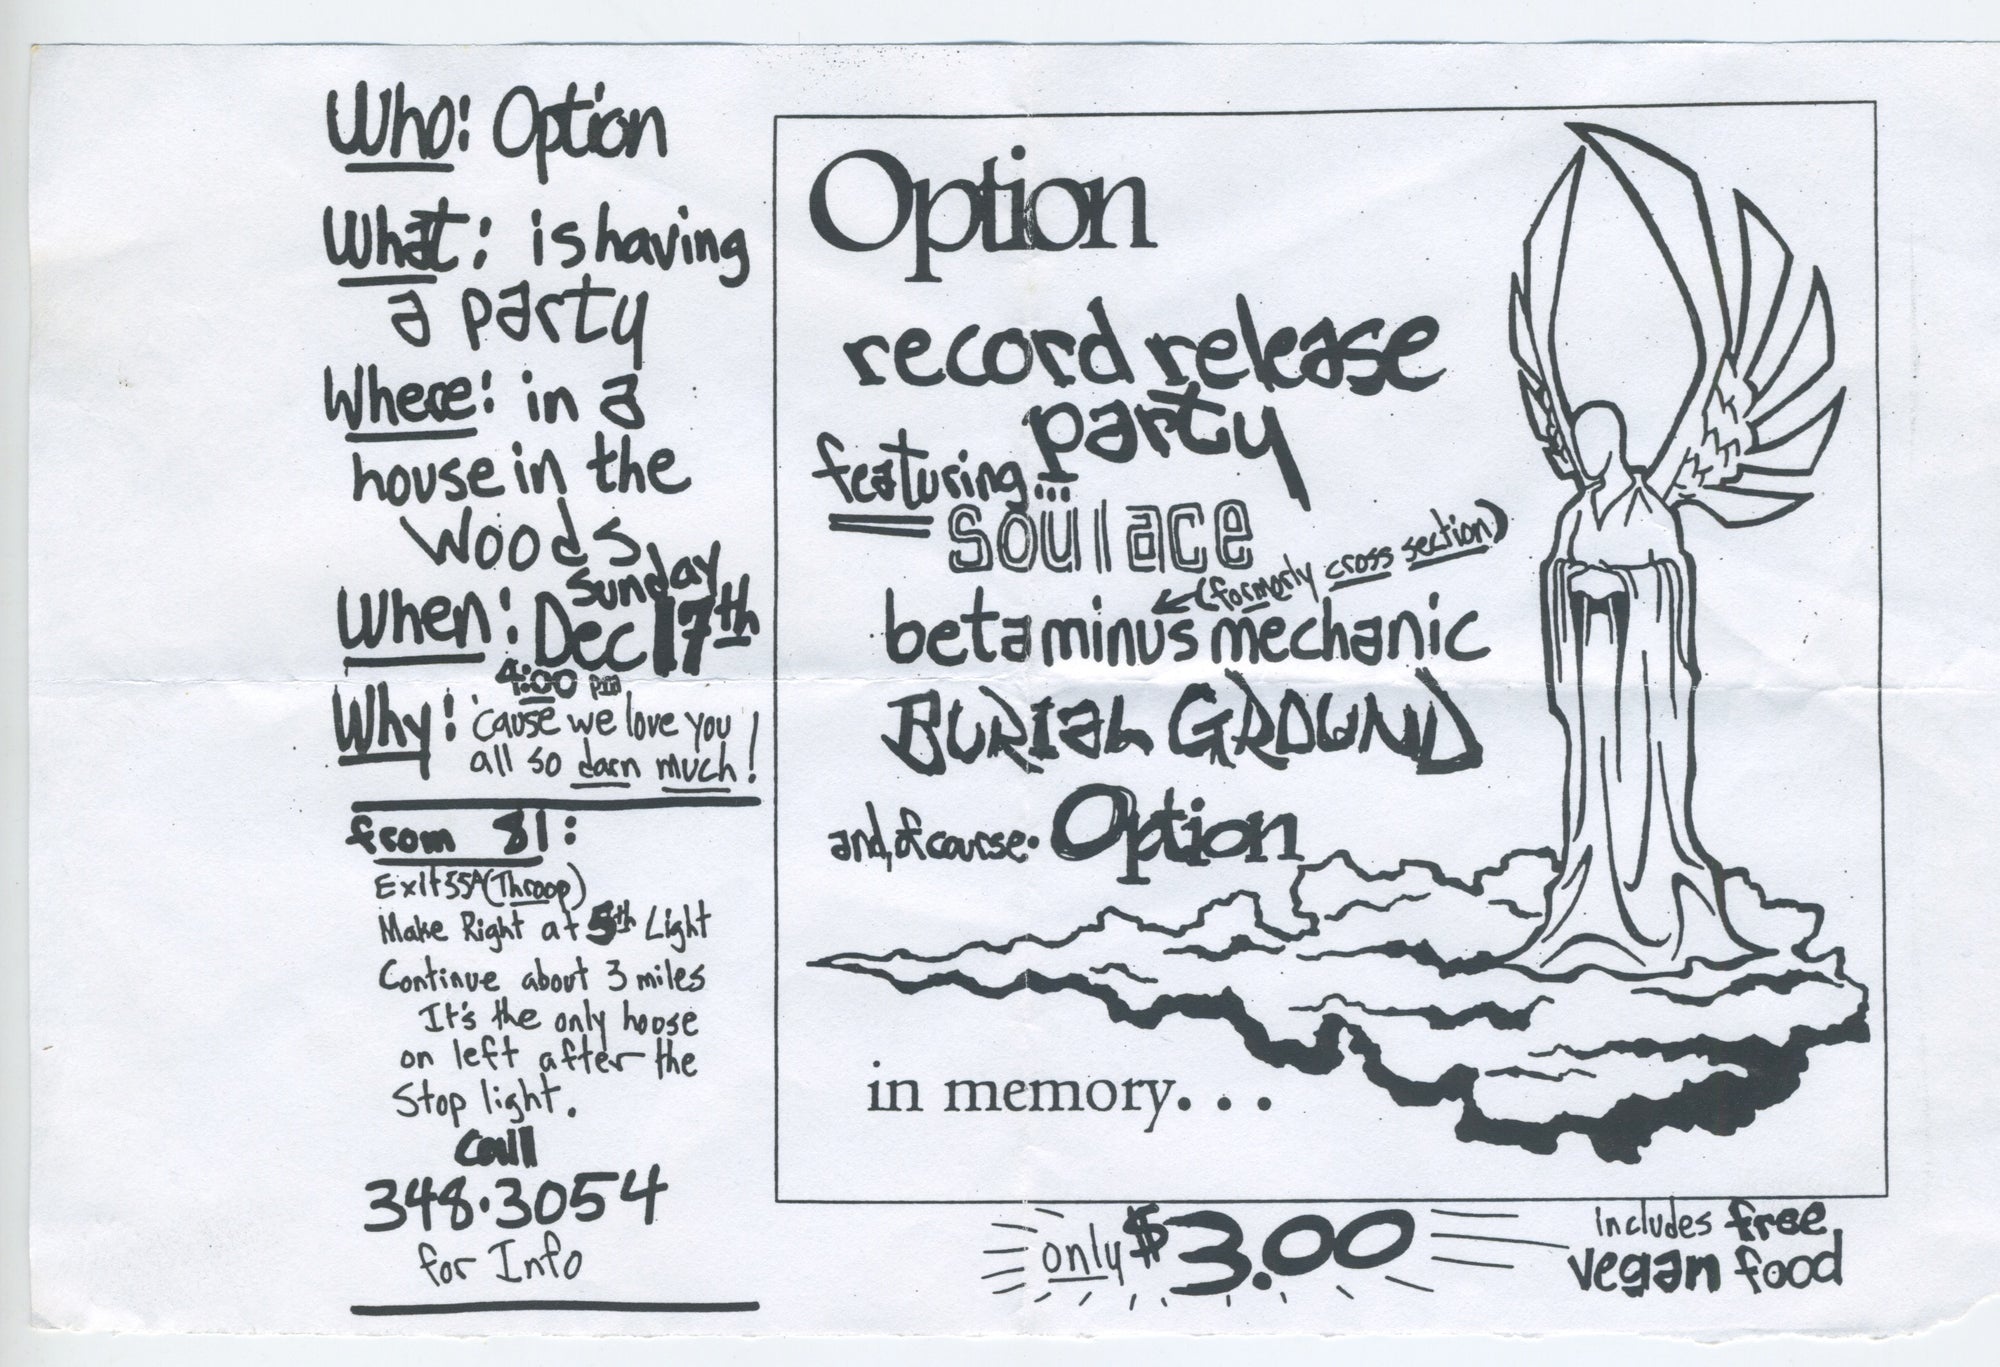 Who: Option
What: is having
a party
Where: in a
house in the
Woods
When: Sunday
Dec 17th
4:00 pm
Why: 'cause we love you
all so darn much!
from 81:
Exit 55A (Throop)
Make Right at 5th Light
Continue about 3 miles
It's the only house
on left after the
Stop light.
Call
348·3054
for Info
Option
record release
party
featuring...
soülace
(formorly cross section)
beta minus mechanic
BURIAL GROUND
and, of course· Option
in memory...
only $3.00
includes free
vegan food